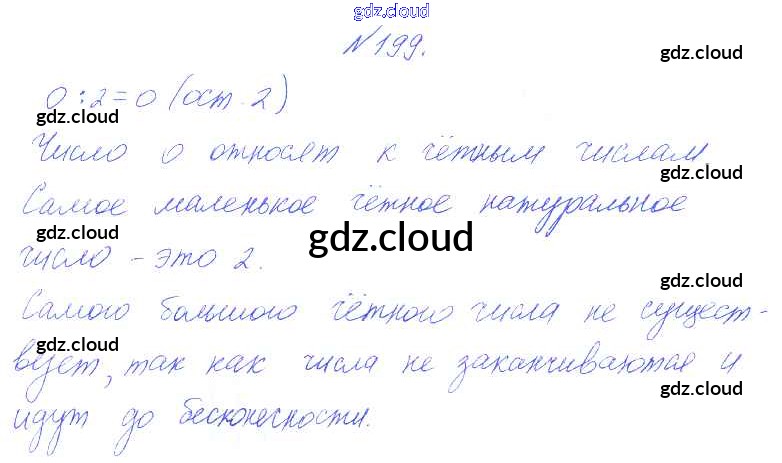 gdz.cloud
№199.
gdz.cloud
0 : 2 = 0 (ост. 2)
gdz.cloud
gdz.cloud
Число 0 относят к чётным числам
gdz.cloud
Самое маленькое чётное натуральное
gdz.cloud
gdz.cloud
число – это 2.
gdz.cloud
Самого большого чётного числа не сущест-
gdz.cloud
вует, так как числа не заканчиваются и
gdz.cloud
идут до бесконечности.